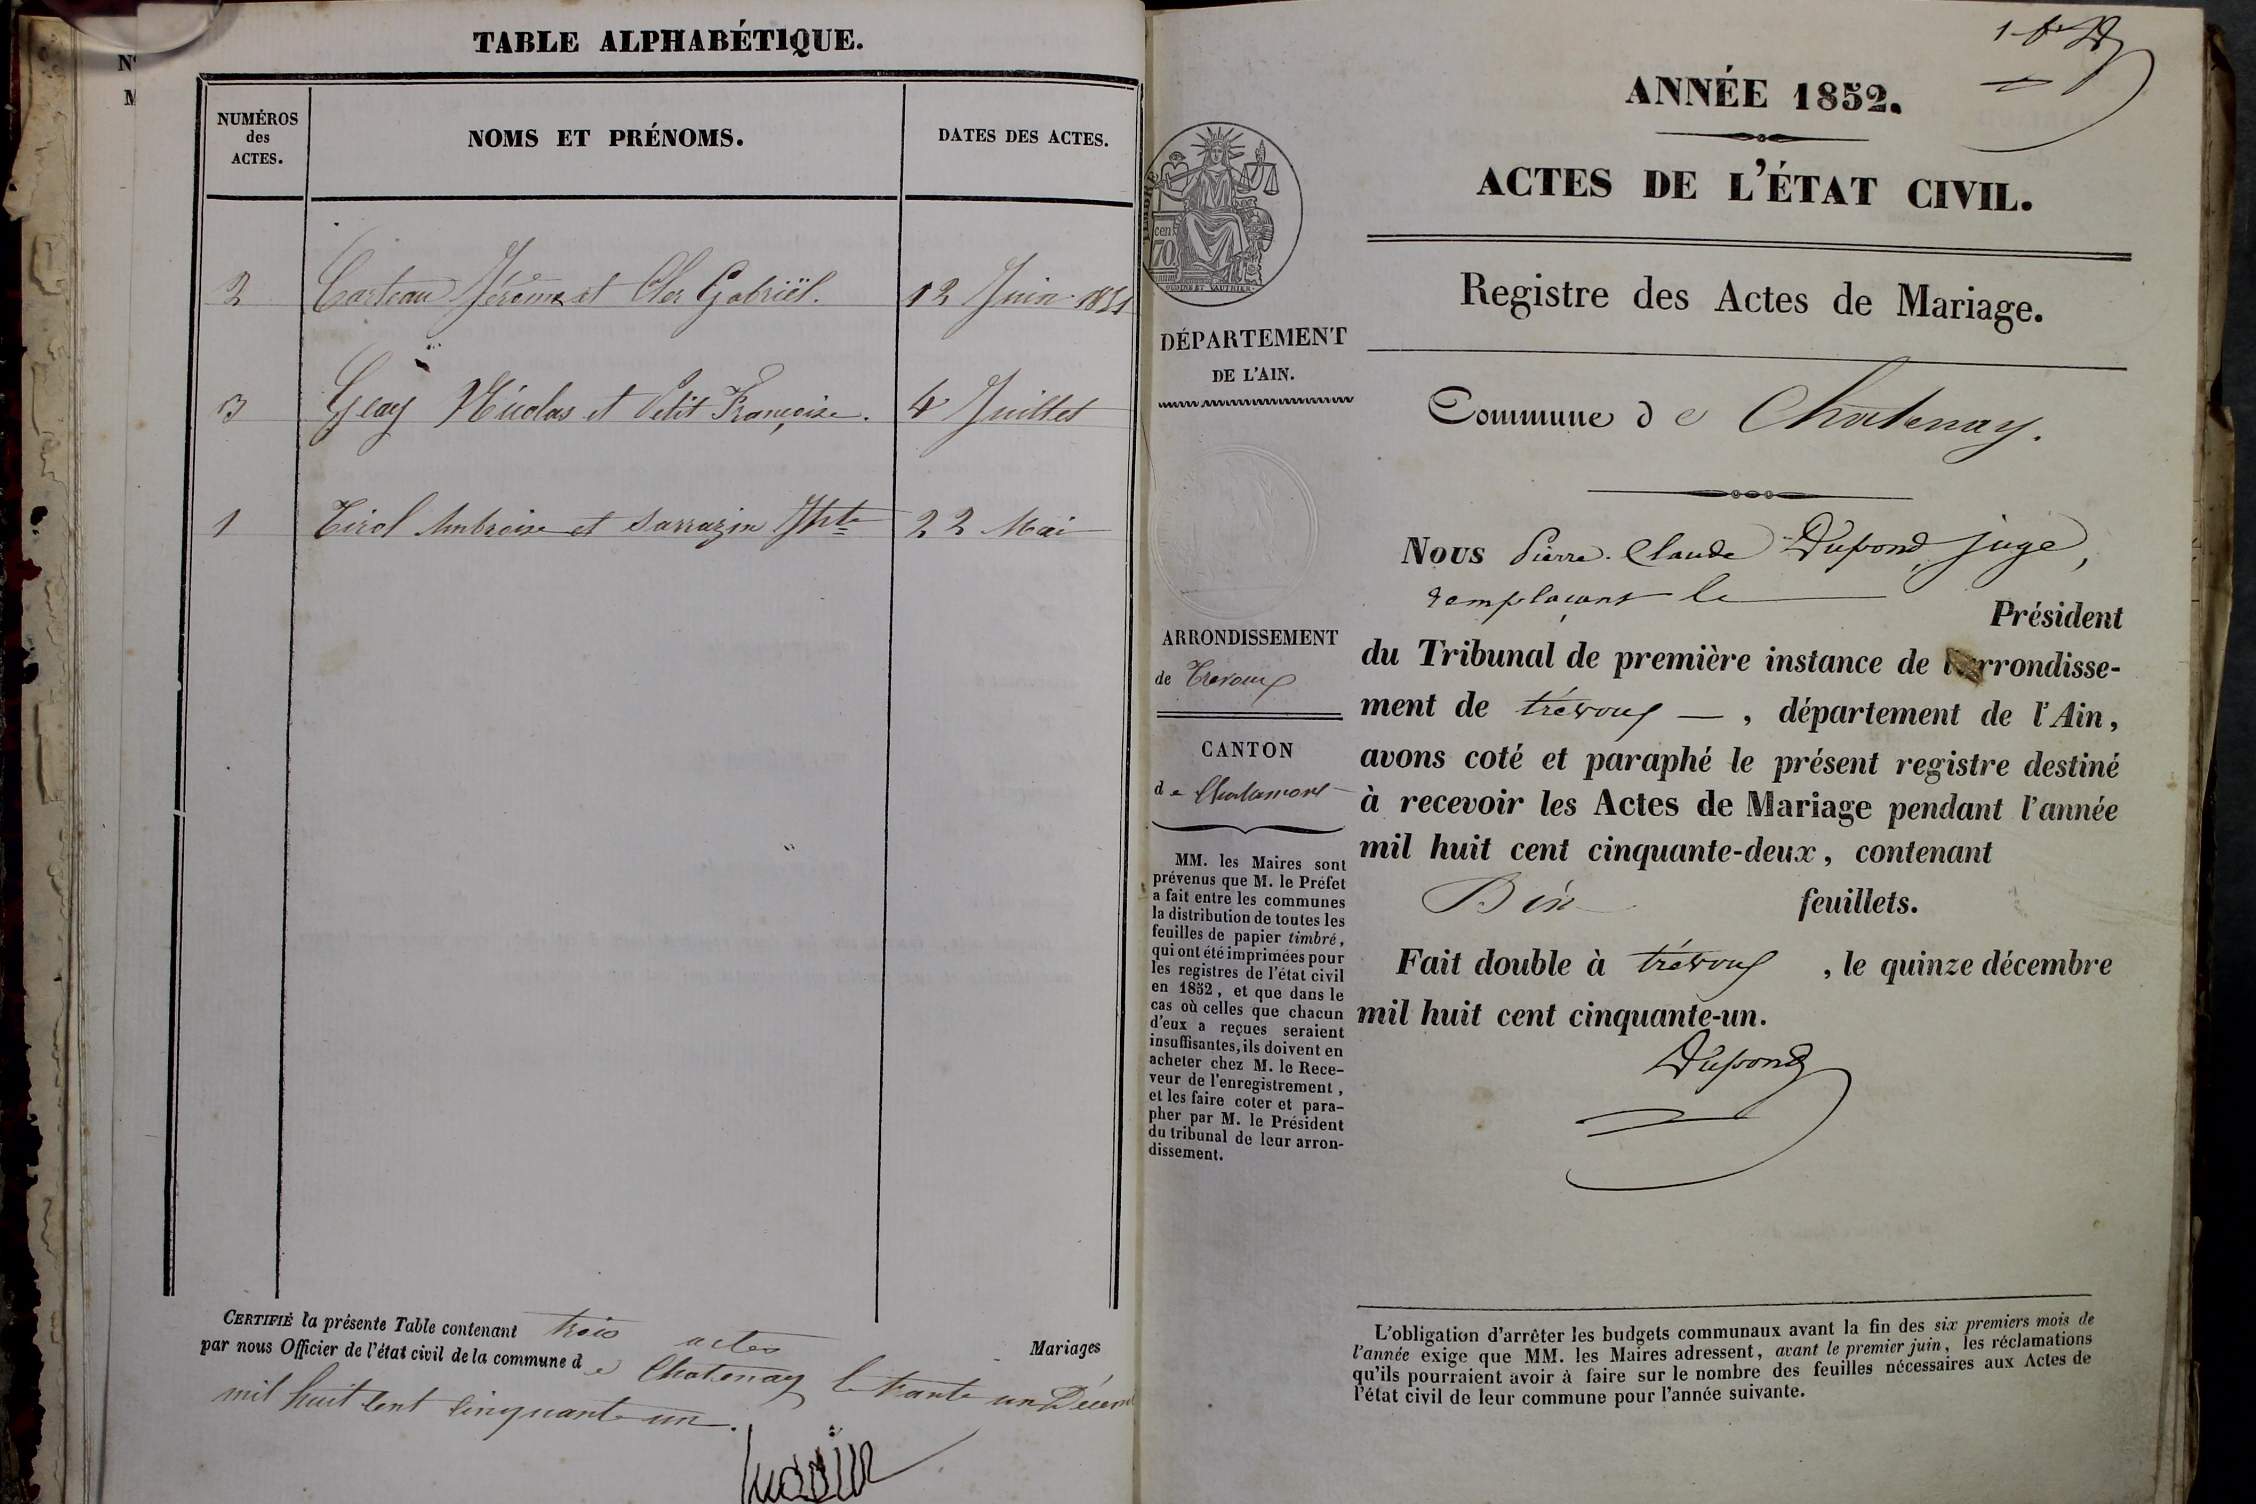 TABLE ALPHABÉTIQUE.
NUMÉROS
des
ACTES.
NOMS ET PRÉNOMS.
DATES DES ACTES.
2 Carteau Jérôme et Cler Gabriël. 12 Juin 1851
3 Geay Nicolas et Petit Françoise. 4 Juillet
1 Tirol Ambroise et Sarrazin 22 Mai
CERTIFIÉ la présente Table contenant trois actes Mariages
par nous Officier de l'état civil de la commune d e Chatenay le trente un Décem
mil huit cent cinquante un.
ANNÉE 1852.
ACTES DE L'ÉTAT CIVIL.
Registre des Actes de Mariage.
TIMBRE
70
cen
DÉPARTEMENT
DE L'AIN.
ARRONDISSEMENT
de Trevoux
CANTON
d e Chalamont
MM. les Maires sont
prévenus que M. le Préfet
a fait entre les communes
la distribution de toutes les
feuilles de papier timbré,
qui ont été imprimées pour
les registres de l'état civil
en 1852, et que dans le
cas où celles que chacun
d'eux a reçues seraient
insuffisantes, ils doivent en
acheter chez M. le Rece-
veur de l'enregistrement,
et les faire coter et para-
pher par M. le Président
du tribunal de leur arron-
dissement.
Commune d e Chatenay.
Nous Pierre-Claude Dupond, juge,
remplaçant le Président
du Tribunal de première instance de l'arrondisse-
ment de trévoux —, département de l'Ain,
avons coté et paraphé le présent registre destiné
à recevoir les Actes de Mariage pendant l'année
mil huit cent cinquante-deux, contenant
Dix feuillets.
Fait double à trévoux, le quinze décembre
mil huit cent cinquante-un.
Dupond
L'obligation d'arrêter les budgets communaux avant la fin des six premiers mois de
l'année exige que MM. les Maires adressent, avant le premier juin, les réclamations
qu'ils pourraient avoir à faire sur le nombre des feuilles nécessaires aux Actes de
l'état civil de leur commune pour l'année suivante.